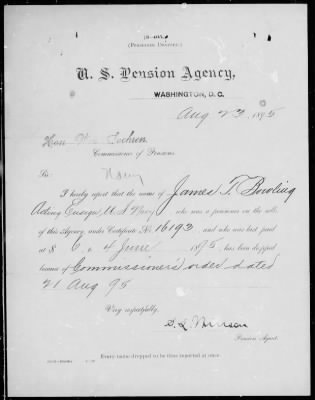 (PENSIONER DROPPED.)
U. S. Pension Agency,
WASHINGTON, D. C.
Aug 23, 1895
Hon. Wm Lochren
Commissioner of Pensions.
Sir: Navy
I hereby report that the name of James T. Bowling
Acting Ensign U.S. Navy, who was a pensioner on the rolls
of this Agency, under Certificate No. 16193, and who was last paid
at $ 6, to 4 June, 1895, has been dropped
because of Commissioner's order dated
21 Aug 95
Very respectfully,
Pension Agent.
Every name dropped to be thus reported at once.